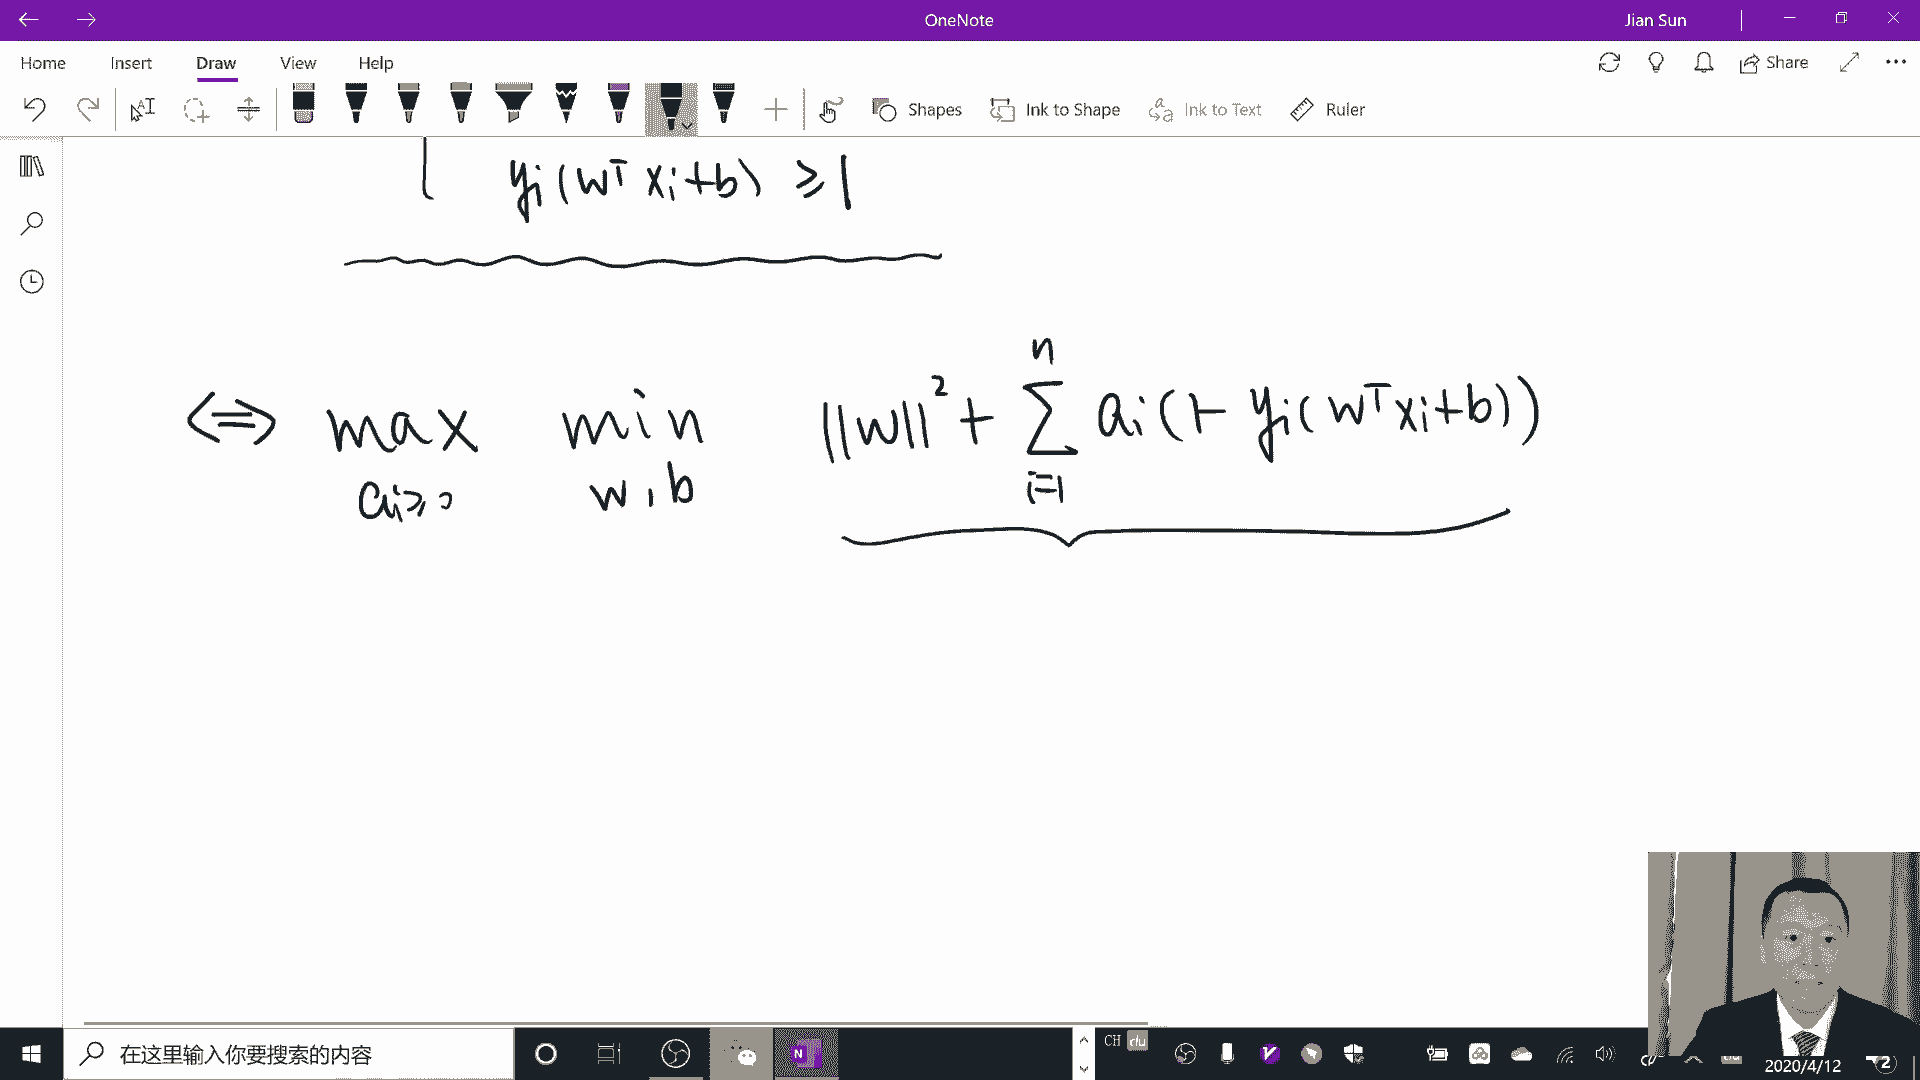 OneNote
Jian Sun
Home Insert Draw View Help
Share
Shapes Ink to Shape Ink to Text Ruler
yi(wᵀxi+b) ≥ 1
⟺ max min ||w||² + ∑ ai(1- yi(wᵀxi+b))
n
ai≥0 w,b i=1
在这里输入你要搜索的内容
CH
2020/4/12
2